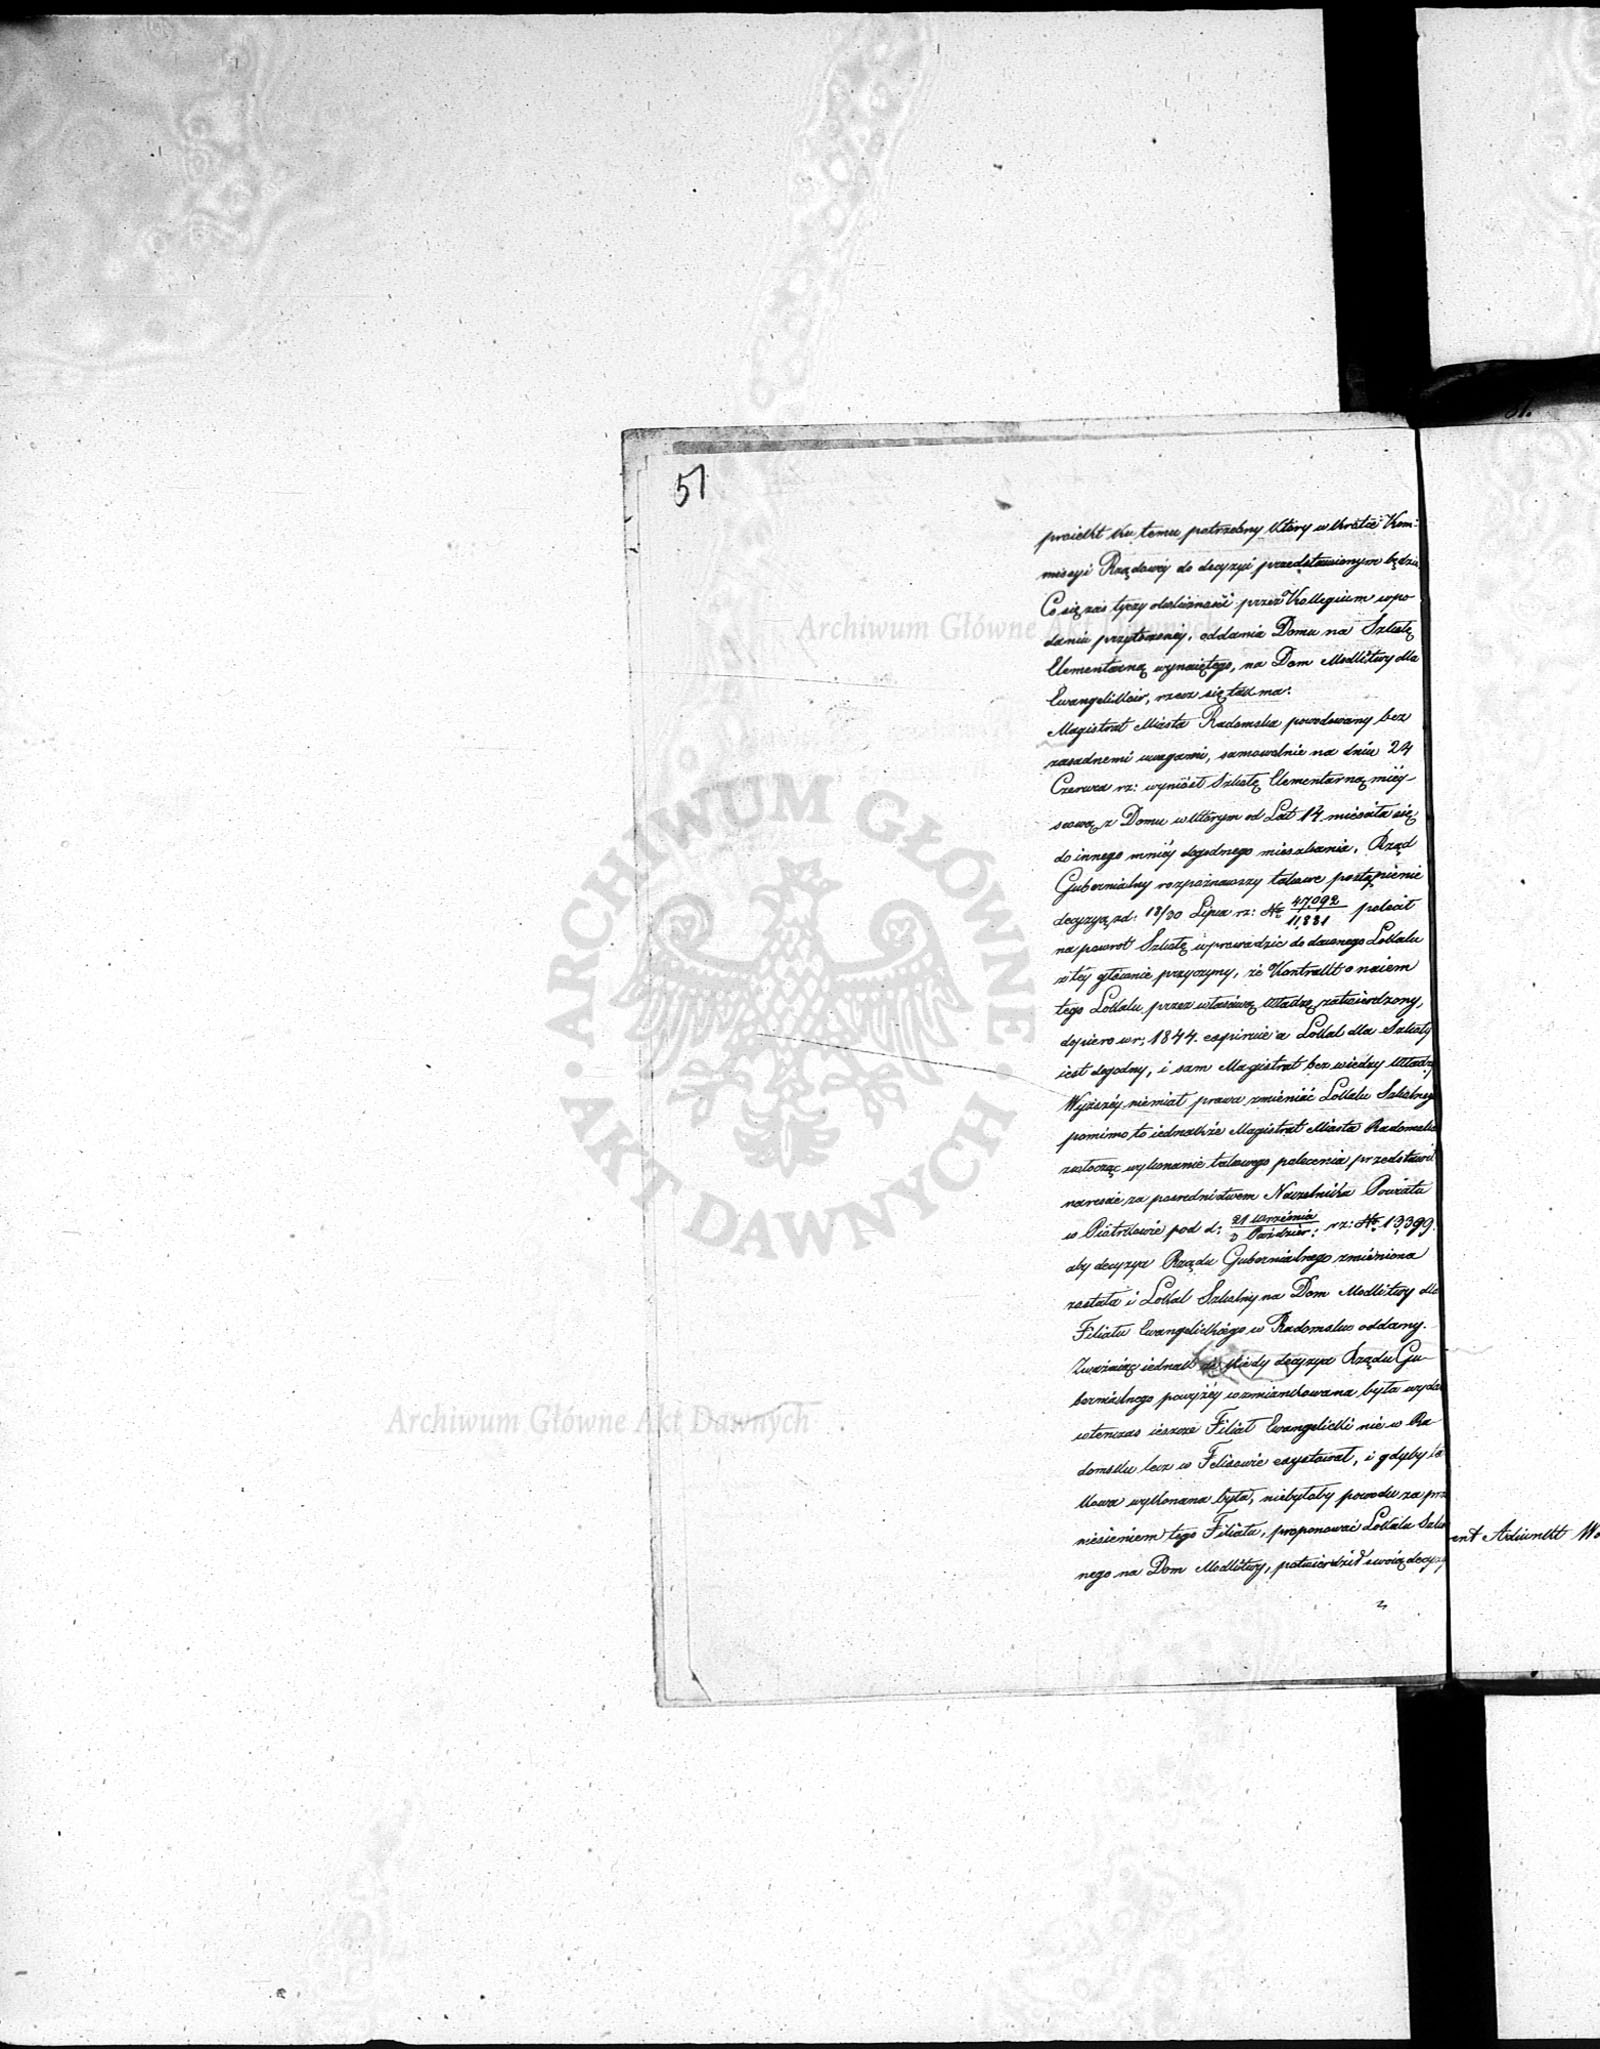 51
proiekt ku temu potrzebny który wkrótce Kom:
missyi Rządowéy do decyzyi przedstawionym będzie
Co się zaś tyczy okoliczności przez Kollegium wpo
daniu przytoczonéy, oddania Domu na Szkołę
Elementarną wynaiętego, na Dom Modlitwy dla
Ewangelików, rzecz się tak ma:
Magistrat Miasta Radomska powodowany bez
zasadnemi uwagami, samowolnie na dniu 24
Czerwca rz: wyniósł Szkołę Elementarną miéy-
scową z Domu wktórym od Lat 14 mieściła się,
do innego mniéy dogodnego mieszkania, Rząd
Gubernialny rozpoznawszy takowe postąpienie
decyzyą zd: 18/30 Lipca rz: № 47,092/11,881 polecił
na powrót Szkołę wprowadzić do dawnego Lokalu
ztéy głównie przyczyny, że Kontrakt o naiem
tego Lokalu przez właściwą Władzę zatwierdzony,
dopiero w r: 1844 expiruie a Lokal dla Szkoły
iest dogodny, i sam Magistrat bez wiedzy Władzy
Wyższéy niemiał prawa zmieniać Lokalu Szkolnego
pomimo to iednakże Magistrat Miasta Radomska
zwłocząc wykonanie takowego polecenia przedstawił
nareszcie za pośrednictwem Naczelnika Powiatu
w Piotrkowie pod d: 21 Września/3 Paździer: rz: № 13399.
aby decyzya Rządu Gubernialnego zmieniona
została i Lokal Szkolny na Dom Modlitwy dla
Filiału Ewangelickiego w Radomsku oddany.
Zważaiąc iednak że kiedy decyzya Rządu Gu-
bernialnego powyżéy wzmiankowana była wydan
wtenczas ieszcze Filiał Ewangelicki nie w Ra-
domsku lecz w Felixowie exystował, i gdyby ta
kowa wykonana była, niebyłoby powodu za prze
niesieniem tego Filiału, proponować Lokalu Szkol
nego na Dom Modlitwy, potwierdził swoią decyzy
ent Adiunkt Wo